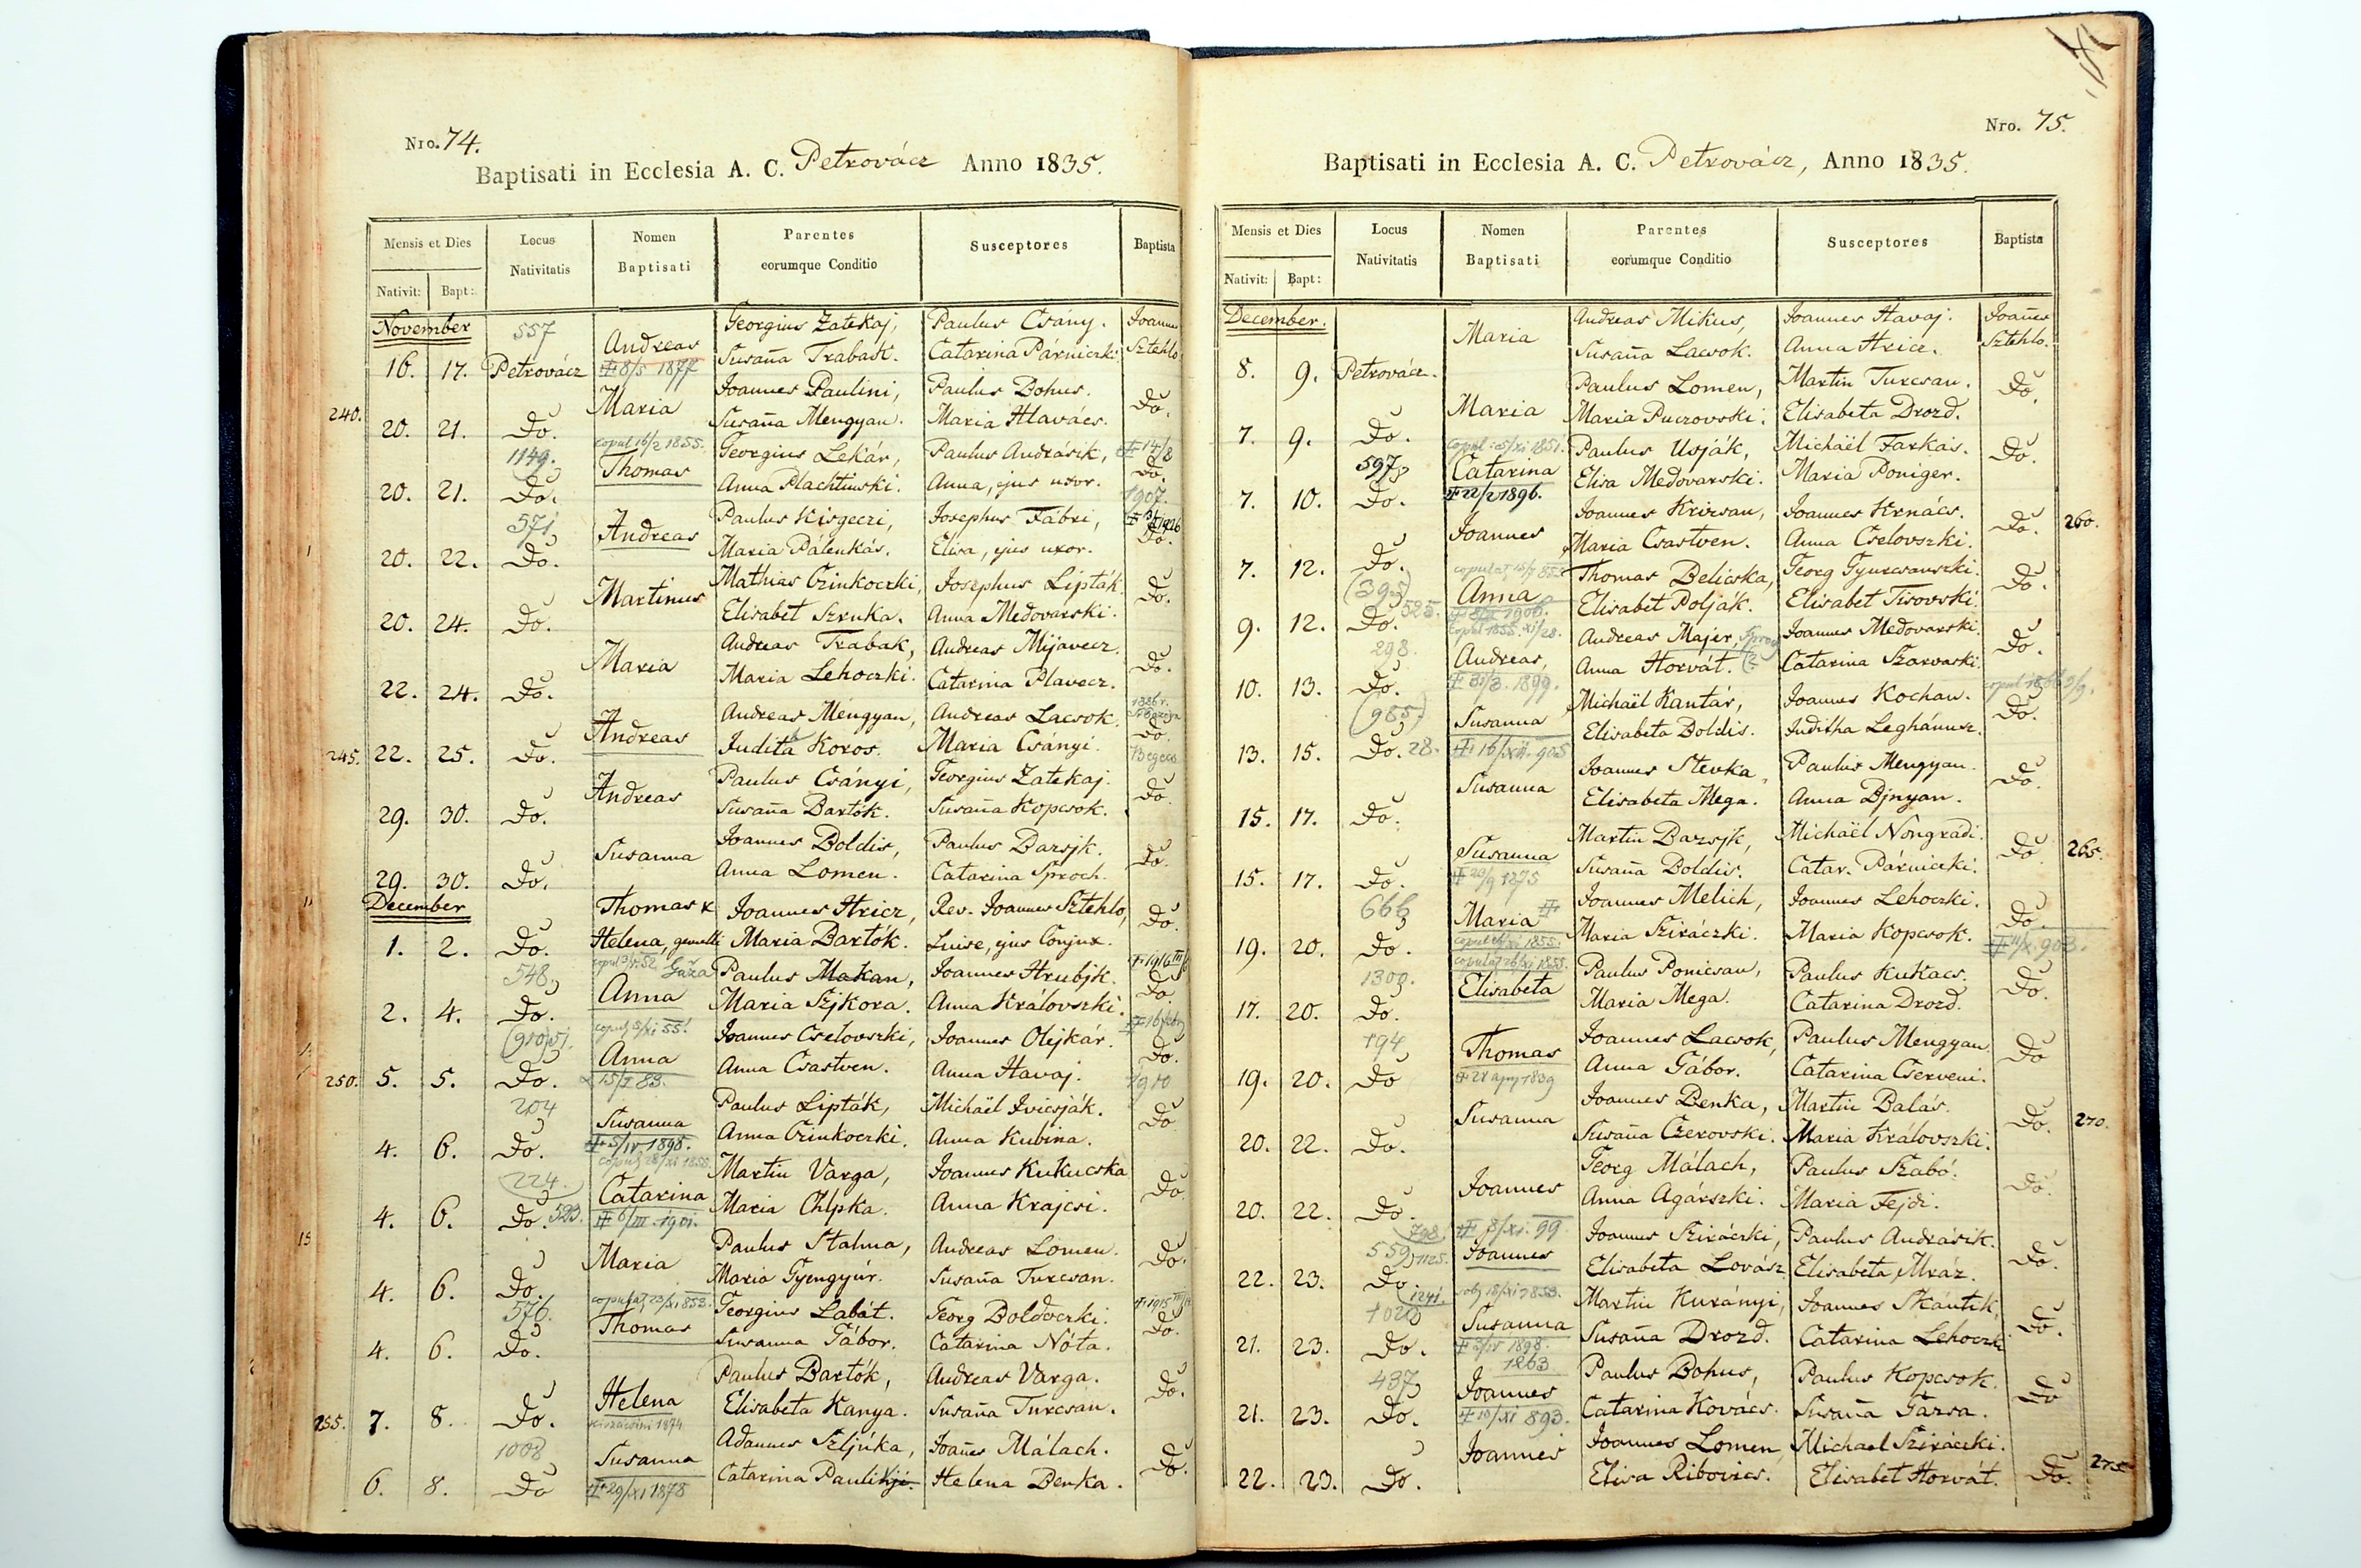 Nro. 74.
Baptisati in Ecclesia A. C. Petrovácz Anno 1835.
Mensis et Dies
Locus Nativitatis
Nomen Baptisati
Parentes eorumque Conditio
Susceptores
Baptista
Nativit: Bapt:
November 557 Georgius Zatekaj, Paulus Csány. Joannes
16. 17. Petrovácz Andreas Susaña Trabak. Catarina Párniczki Sztehlo
8/5 1877
Joannes Paulini, Paulus Bohus.
240. 20. 21. Do. Maria Susaña Mengyan. Maria Hlavács. Do.
copul 16/2 1855.
1149. Georgius Lekár, Paulus Andrásik, 14/8
20. 21. Do. Thomas Anna Plachtinski. Anna, ejus uxor. Do. 1907.
571 Paulus Kisgeczi, Josephus Fábri,
20. 22. Do. Andreas Maria Pálenkás. Elisa, ejus uxor. Do.
Mathias Czinkoczki, Josephus Lipták
20. 24. Do. Martinus Elisabet Szruka. Anna Medovarski. Do.
Andreas Trabak, Andreas Mijavecz.
22. 24. Do. Maria Maria Lehoczki. Catarina Plavecz. Do.
Andreas Mengyan, Andreas Lacsok.
245. 22. 25. Do. Andreas Judita Koros. Maria Csányi. Do.
Paulus Csányi, Georgius Zatekaj.
29. 30. Do. Andreas Susaña Bartók. Susaña Kopcsok. Do.
Joannes Boldis, Paulus Barsjk.
29. 30. Do. Susanna Anna Lomen. Catarina Sproch. Do.
December
Thomas x Joannes Hricz, Rev. Joannes Sztehlo,
1. 2. Do. Helena, gemelli Maria Bartók. Luise, ejus Conjux. Do.
548 Paulus Makan, Joannes Hrubjk.
2. 4. Do. Anna Maria Sjkora. Anna Královszki. Do.
Joannes Cselovszki, Joannes Olejkár.
250. 5. 5. Do. Anna Anna Csastven. Anna Havaj. Do.
15/I 83. 1910
204 Paulus Lipták, Michaël Ivicsják.
4. 6. Do. Susanna Anna Czinkoczki. Anna Kubina. Do
5/IV 1898.
224. Martin Varga, Joannes Kukucska
4. 6. Do. 523. Catarina Maria Chlpka. Anna Krajcsi. Do.
6/III 1901.
Paulus Stahna, Andreas Lomen.
4. 6. Do. Maria Maria Gyengyúr. Susaña Turcsan. Do.
576. Georgius Labát. Georg Boldoczki.
4. 6. Do. Thomas Susanna Gábor. Catarina Nóta. Do.
Paulus Bartók, Andreas Varga.
255. 7. 8. Do. Helena Elisabeta Kanya. Susaña Turcsan. Do.
1008 Adamus Szljúka, Joañes Málach.
6. 8. Do Susanna Catarina Paulini. Helena Benka. Do.
29/XI 1878
Nro. 75.
Baptisati in Ecclesia A. C. Petrovácz, Anno 1835.
Mensis et Dies
Locus Nativitatis
Nomen Baptisati
Parentes eorumque Conditio
Susceptores
Baptista
Nativit: Bapt:
December. Andreas Mikus, Joannes Havaj. Joañes
8. 9. Petrovácz. Maria Susaña Lacsok. Anna Hricz. Sztehlo.
Paulus Lomen, Martin Turcsan.
7. 9. Do. Maria Maria Puczovski. Elisabeta Drozd. Do.
597 Paulus Usják, Michaël Farkas.
7. 10. Do. Catarina Elisa Medovarski. Maria Poniger. Do.
22/2 1896.
Joannes Krivsan, Joannes Krnács.
7. 12. Do. Joannes Maria Csastven. Anna Cselovszki. Do. 260.
(395) Thomas Belicska, Georg Gyurcsanszki.
9. 12. Do. 525. Anna Elisabet Polják. Elisabet Tisovski. Do.
298. Andreas Majer, Joannes Medovarski.
10. 13. Do. Andreas, Anna Horvát. Catarina Szarvaski. Do.
31/3. 1899.
(985) Michaël Kantár, Joannes Kochan.
13. 15. Do. 28. Susanna Elisabeta Boldis. Juditha Leghánusz. Do.
16/XII. 905
Joannes Stevka, Paulus Mengyan.
15. 17. Do. Susanna Elisabeta Mega. Anna Djnyan. Do.
Martin Barsjk, Michaël Nôngrádi.
15. 17. Do. Susanna Susaña Boldis. Catar. Párniczki. Do 265.
666 Joannes Melich, Joannes Lehoczki.
19. 20. Do. Maria Maria Sziráczki. Maria Kopcsok. Do.
1300. Paulus Ponicsan, Paulus Kukacs.
17. 20. Do. Elisabeta Maria Mega. Catarina Drozd. Do.
194 Joannes Lacsok, Paulus Mengyan
19. 20. Do Thomas Anna Gábor. Catarina Cserveni. Do
Joannes Benka, Martin Balás.
20. 22. Do. Susanna Susaña Czerovski. Maria Královszki. Do. 270.
Georg Málach, Paulus Szabó.
20. 22. Do. Joannes Anna Agárszki. Maria Fejdi. Do.
8/XI. 99
559 Joannes Sziráczki, Paulus Andrásik.
22. 23. Do. Joannes Elisabeta Lovász. Elisabeta Mráz. Do.
1241.
Martin Kurányi, Joannes Skántik
21. 23. Do. Susanna Susaña Drozd. Catarina Lehoczki Do.
1898.
1263
437 Paulus Bohus, Paulus Kopcsok.
21. 23. Do. Joannes Catarina Kovács. Susaña Farsa. Do
10/XI 893.
Joannes Lomen Michael Sziráczki.
22. 23. Do. Joannes Elisa Ribovics. Elisabet Horvát. Do. 275